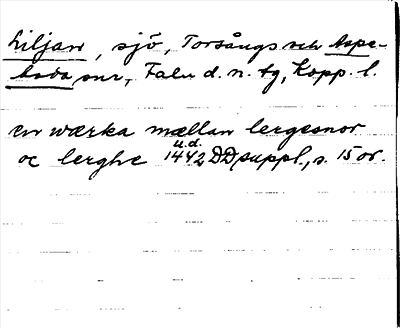 Liljan, sjö, Torsångs och Aspe-
boda snr, Falu d. n. tg, Kopp. l.
en wærka mællan lergesnor
u.d.
oc lerghe 1442 DDsuppl., s. 15 or.